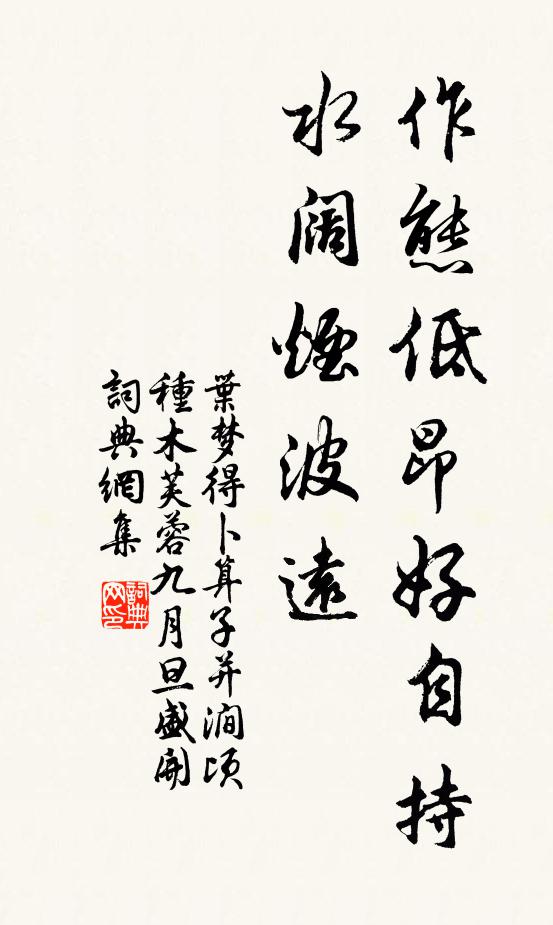 作態低昂好自持
水阔煙波遠
葉梦得卜算子并澗頃
種木芙蓉九月旦盛開
詞典網集
詞典网印